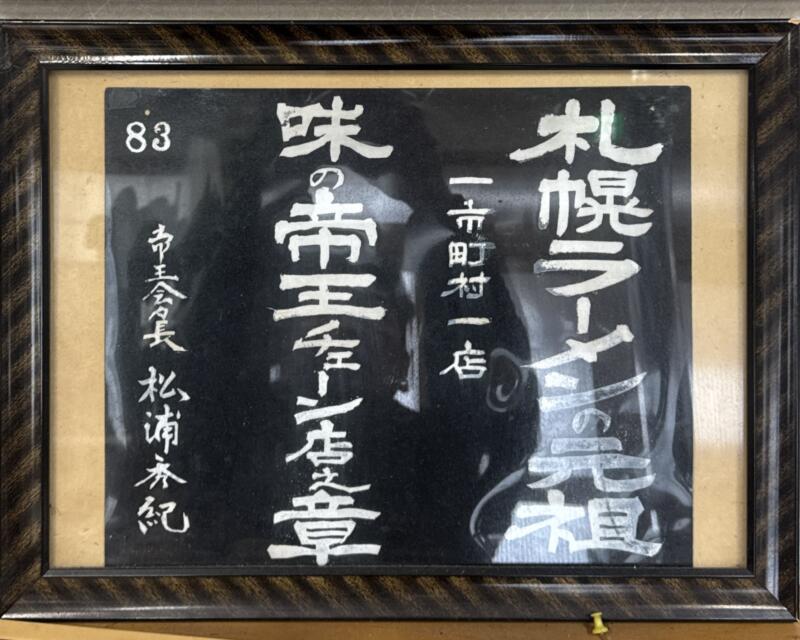 札幌ラーメンの元祖
一市町村一店
味の帝王チェーン店之章
83
帝王会々長 松浦秀紀